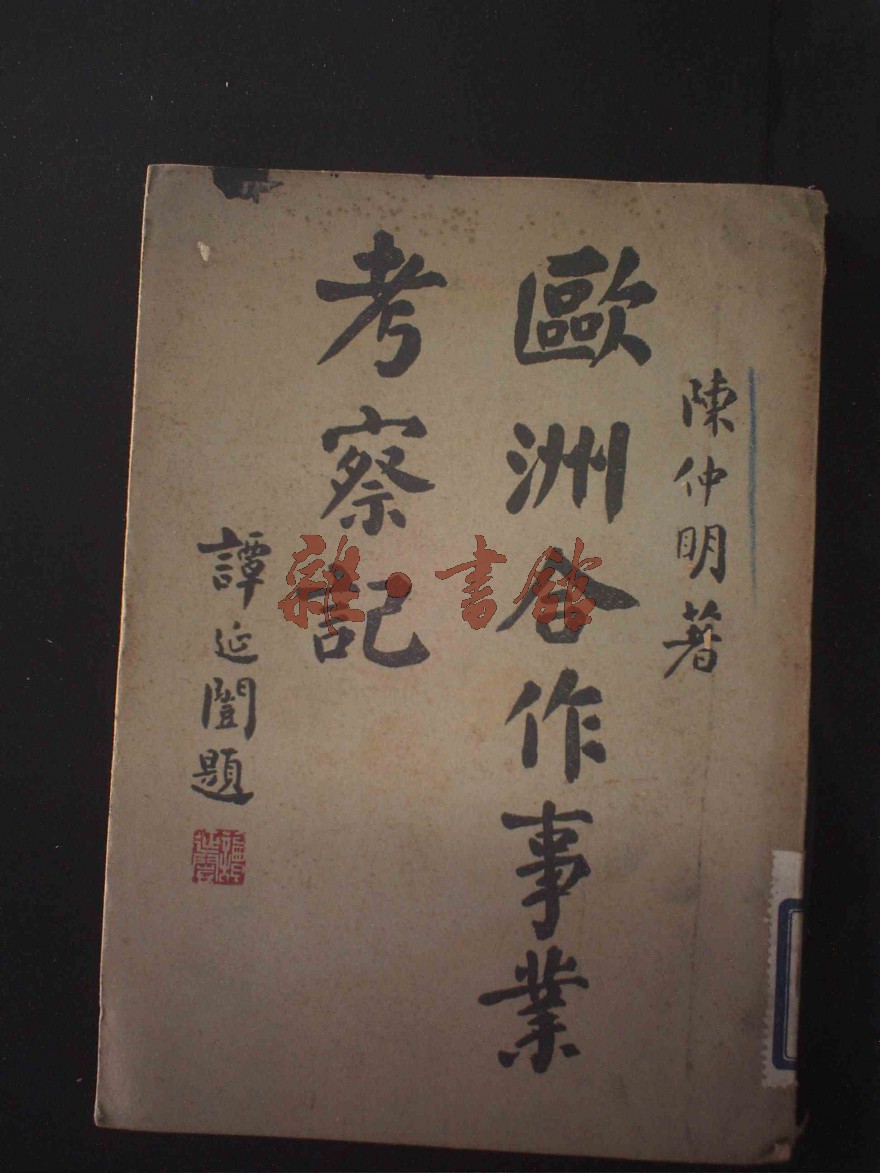 陳仲明著
歐洲合作事業
考察記
譚延闓題
雜·書館